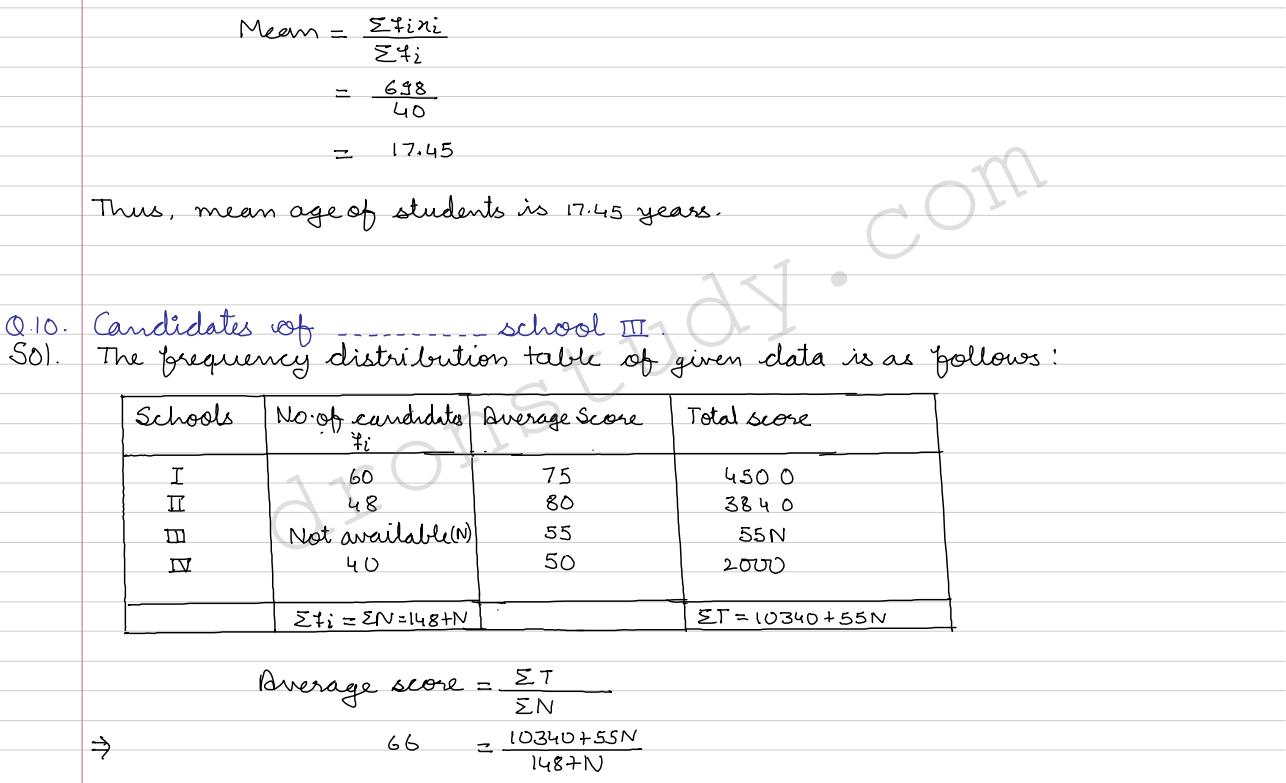 Mean = Σfixi / Σfi
= 698 / 40
= 17.45
Thus, mean age of students is 17.45 years.
Q.10. Candidates of ---------- school III.
Sol. The frequency distribution table of given data is as follows:
Schools No. of candidates fi Average Score Total score
I 60 75 4500
II 48 80 3840
III Not available(N) 55 55N
IV 40 50 2000
Σfi = ΣN = 148+N ΣT = 10340+55N
Average score = ΣT / ΣN
⇒ 66 = 10340+55N / 148+N
dronstudy.com